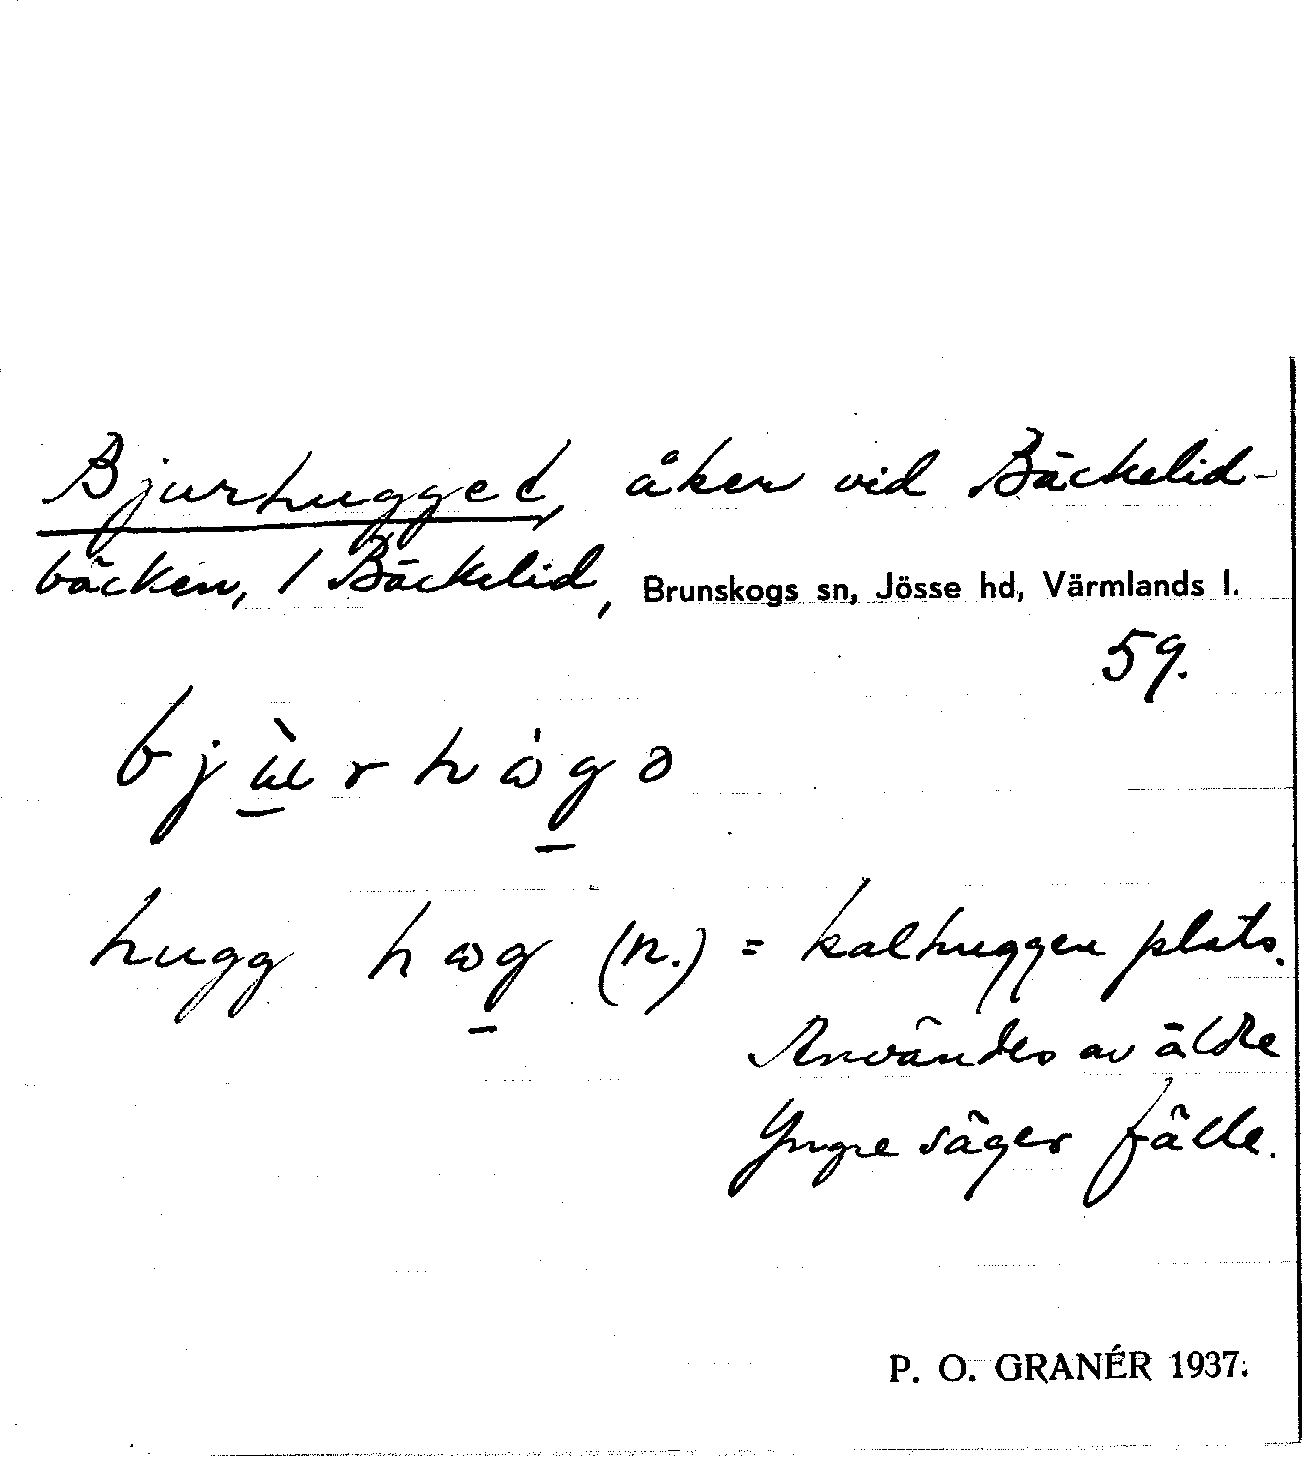 Bjurhugget, åker vid Bäckelid-
bäcken, / Bäckelid, Brunskogs sn, Jösse hd, Värmlands l.
59.
hugg (n.) = kalhuggen plats.
Användes av äldre
Yngre säger fälle.
P. O. GRANÉR 1937.